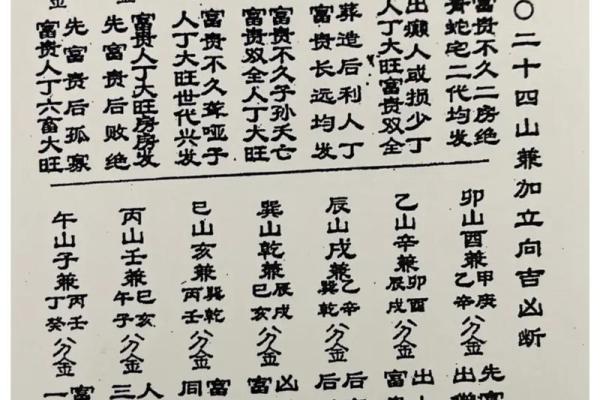 〇二十四山兼加立向吉凶断
富贵不久二房绝
蛇宅二代均发
出癞人或损少丁
人丁大旺富贵双全
葬造后利人丁
富贵长远均发
富贵不久子孙夭亡
富贵双全人丁大旺
富贵不久聋哑子
人丁大旺世代兴发
富贵人丁大旺房房发
先富贵后败绝
先富贵后孤寡
富贵人丁六畜大旺
卯山酉兼甲庚乙辛分金
乙山辛兼卯酉辰戌分金
辰山戌兼乙辛巽乾分金
巽山乾兼辰戌巳亥分金
巳山亥兼巽乾丙壬分金
丙山壬兼巳亥午子分金
午山子兼丙壬丁癸分金
先富
出
出
富贵
后
后
凶
富
富
同
人
三
富
一